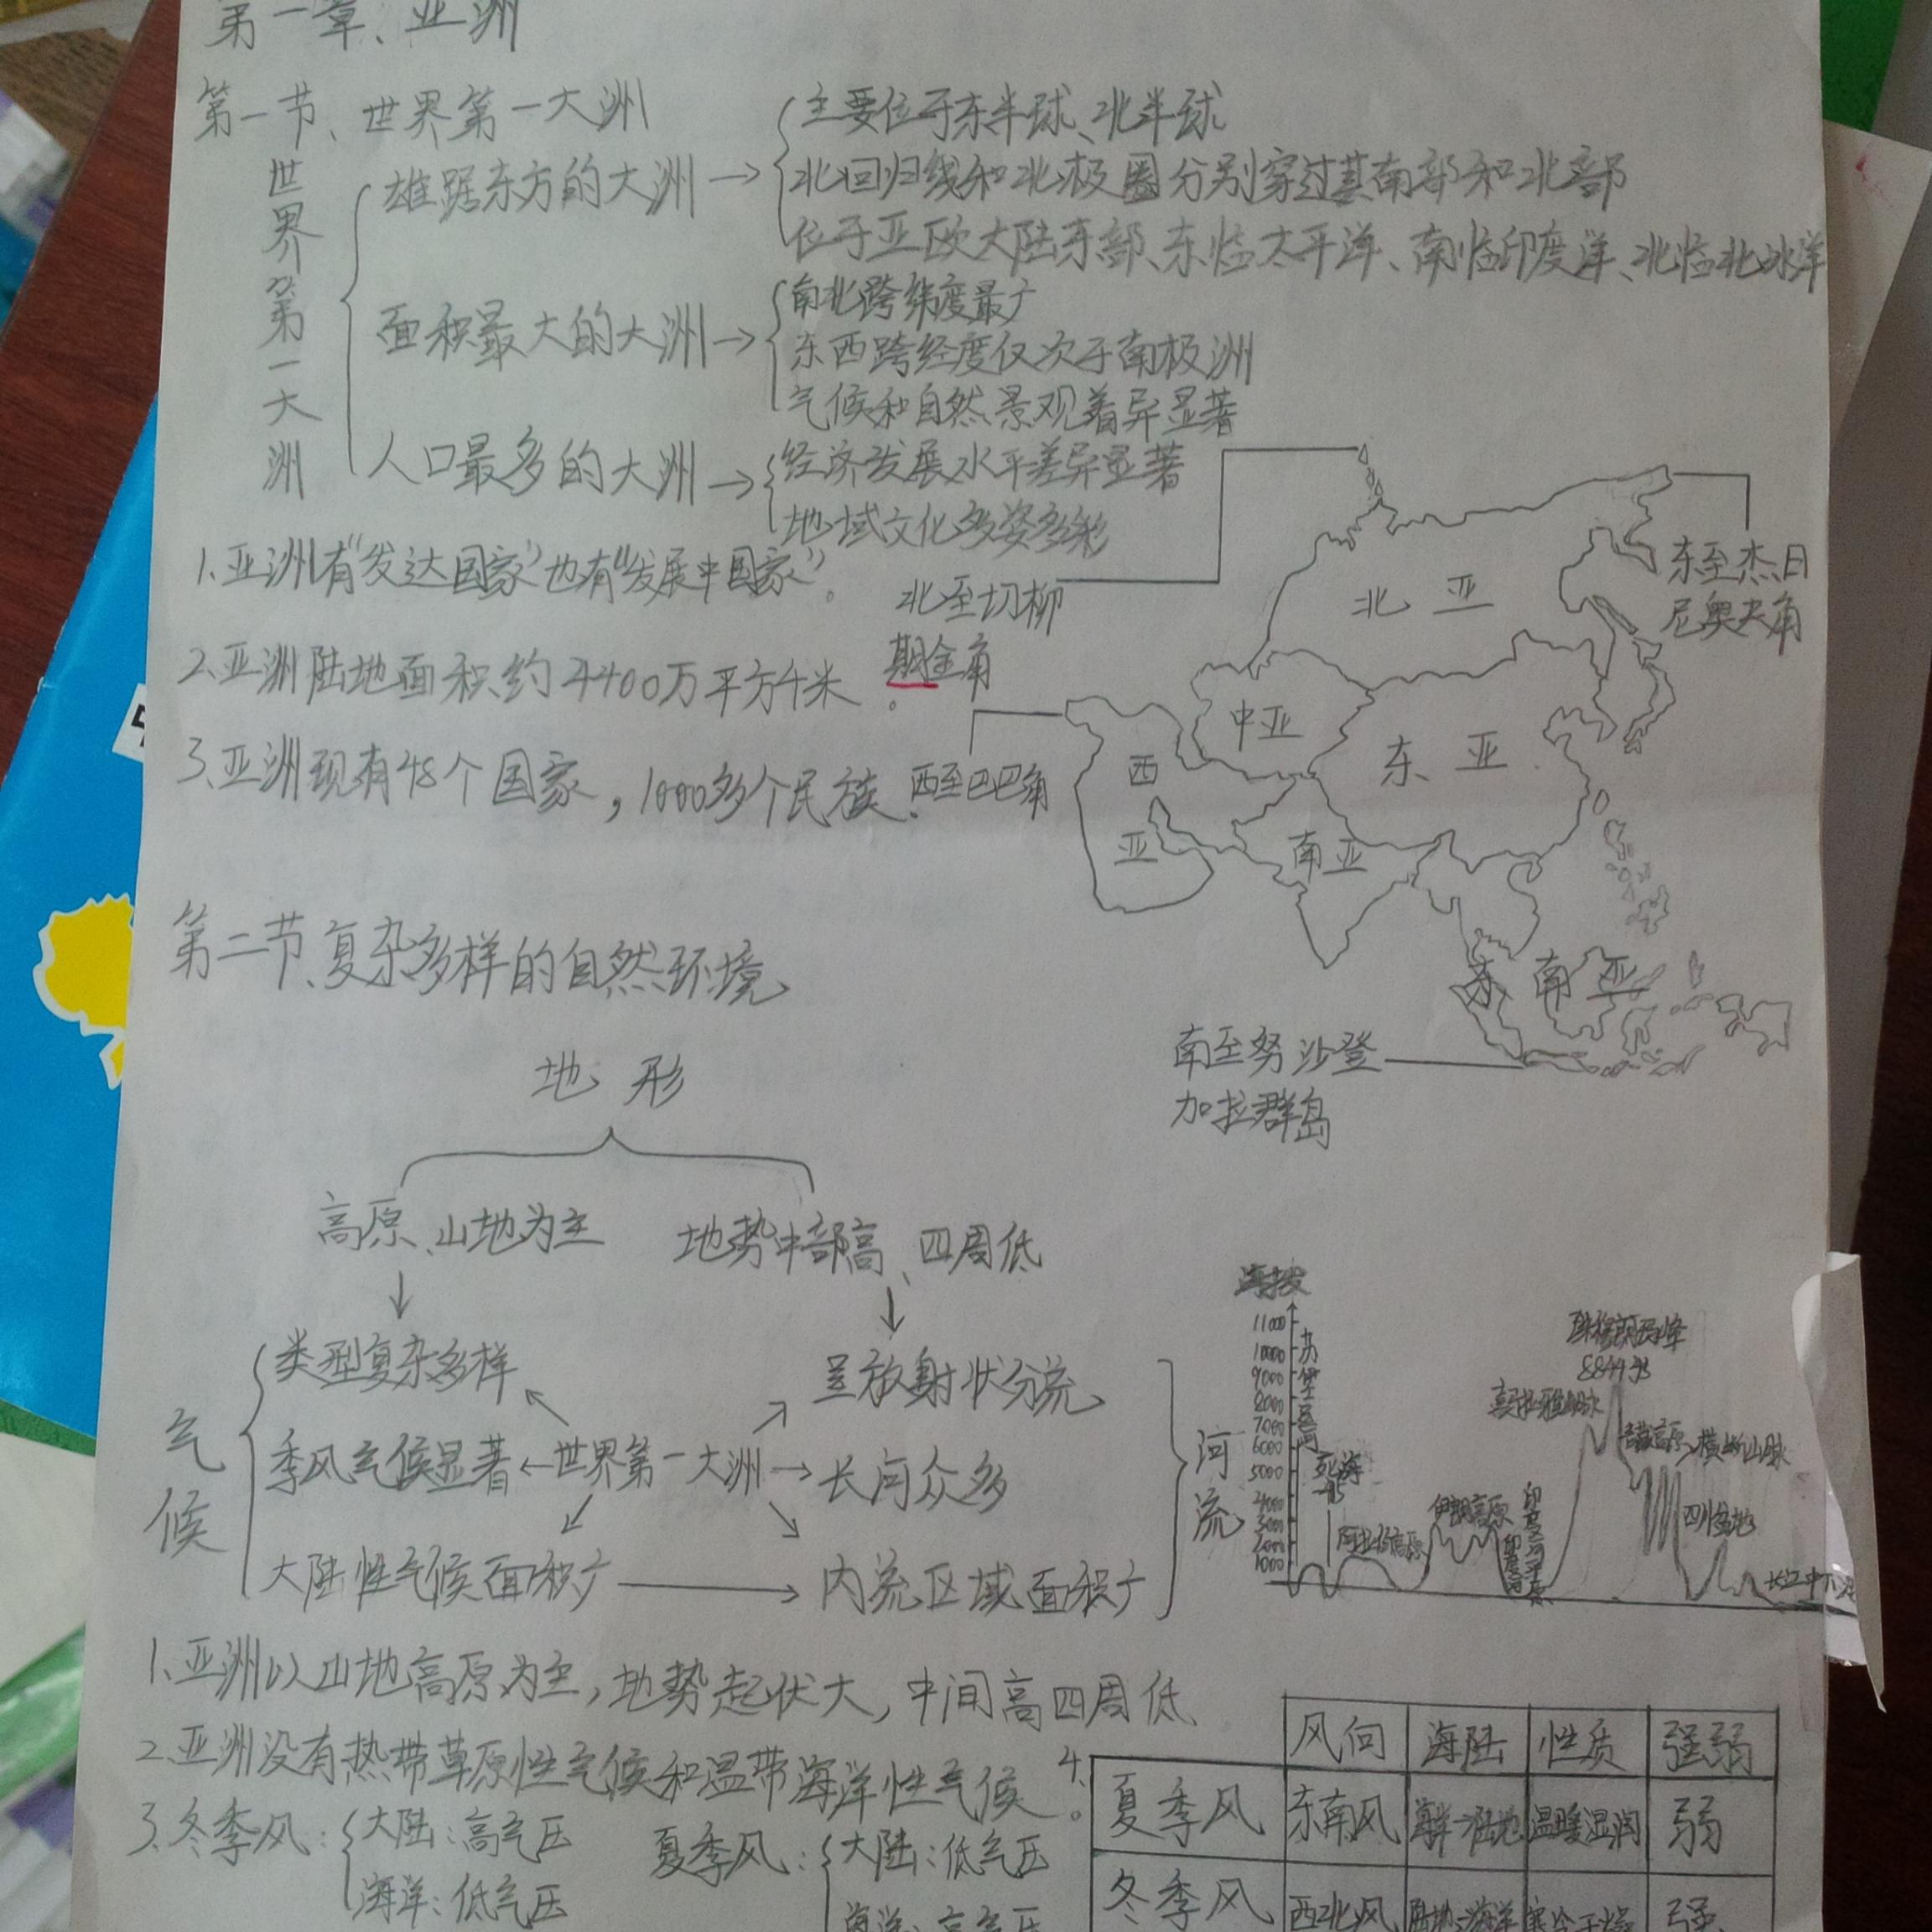 第一章、亚洲
第一节、世界第一大洲
世界第一大洲
雄踞东方的大洲→
主要位于东半球、北半球
北回归线和北极圈分别穿过其南部和北部
位于亚欧大陆东部、东临太平洋、南临印度洋、北临北冰洋
面积最大的大洲→
南北跨纬度最广
东西跨经度仅次于南极洲
气候和自然景观差异显著
人口最多的大洲→
经济发展水平差异显著
地域文化多姿多彩
1.亚洲有“发达国家”也有“发展中国家”。
2.亚洲陆地面积约4400万平方千米。
3.亚洲现有48个国家，1000多个民族.
北至切柳
期金角
东至杰日
尼奥夫角
西至巴巴角
南至努沙登
加拉群岛
北亚
中亚
东亚
西亚
南亚
东南亚
第二节、复杂多样的自然环境
地形
高原、山地为主
地势中部高、四周低
气候
类型复杂多样
季风气候显著←世界第一大洲→长河众多
大陆性气候面积广→内流区域面积广
呈放射状分流
河流
海拔
11000
10000
9000
8000
7000
6000
5000
4000
3000
2000
1000
死海
阿拉伯高原
伊朗高原
印度河平原
喜马拉雅山脉
珠穆朗玛峰
青藏高原
横断山脉
四川盆地
1.亚洲以山地高原为主，地势起伏大，中间高四周低
2.亚洲没有热带草原性气候和温带海洋性气候。
3.冬季风：
大陆：高气压
海洋：低气压
夏季风：
大陆：低气压
海洋：高气压
4.
风向 海陆 性质 强弱
夏季风 东南风 海洋→陆地 温暖湿润 弱
冬季风 西北风 陆地→海洋 寒冷干燥 强